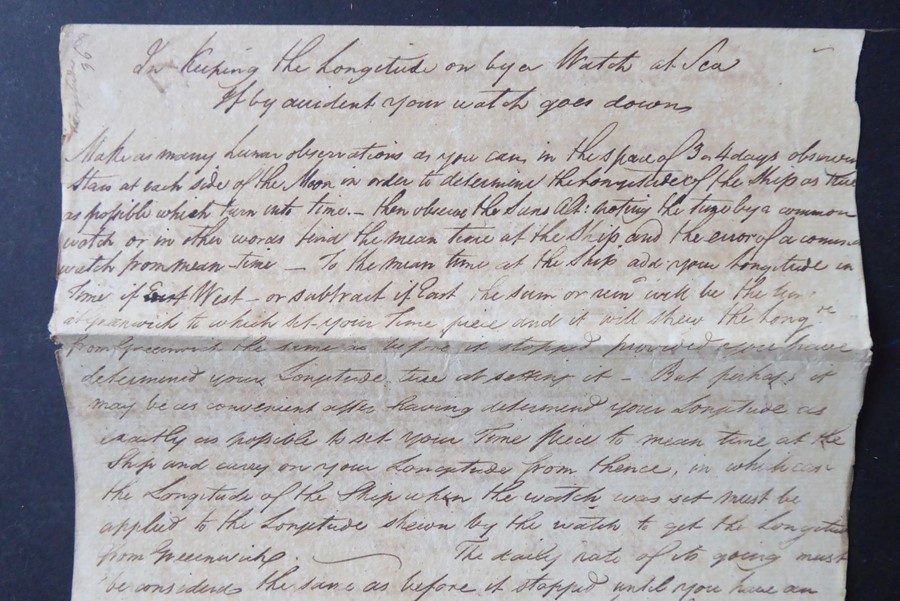 In Keeping the Longitude on by a Watch at Sea
If by accident your watch goes down
Make as many Lunar observations as you can in the space of 3 or 4 days observing
Stars at each side of the Moon in order to determine the Longitude of the Ship as true
as possible which turn into time. - then observe the Suns Alt: noting the time by a common
watch or in other words find the mean time at the Ship and the error of a common
watch from mean time - To the mean time at the Ship add your Longitude in
Time if West - or subtract if East the sum or rem^r will be the time
at Greenwich to which set your time piece and it will shew the Long^de
from Greenwich the same as before it stopped provided you have
determined your Longitude true at setting it - But perhaps it
may be as convenient after having determind your Longitude as
exactly as possible to set your Time piece to mean time at the
Ship and carry on your Longitude from thence, in which case
the Longitude of the Ship when the watch was set must be
applied to the Longitude shewn by the watch to get the Longitude
from Greenwich. The daily rate of its going must
be considerd the same as before it stopped until you have an